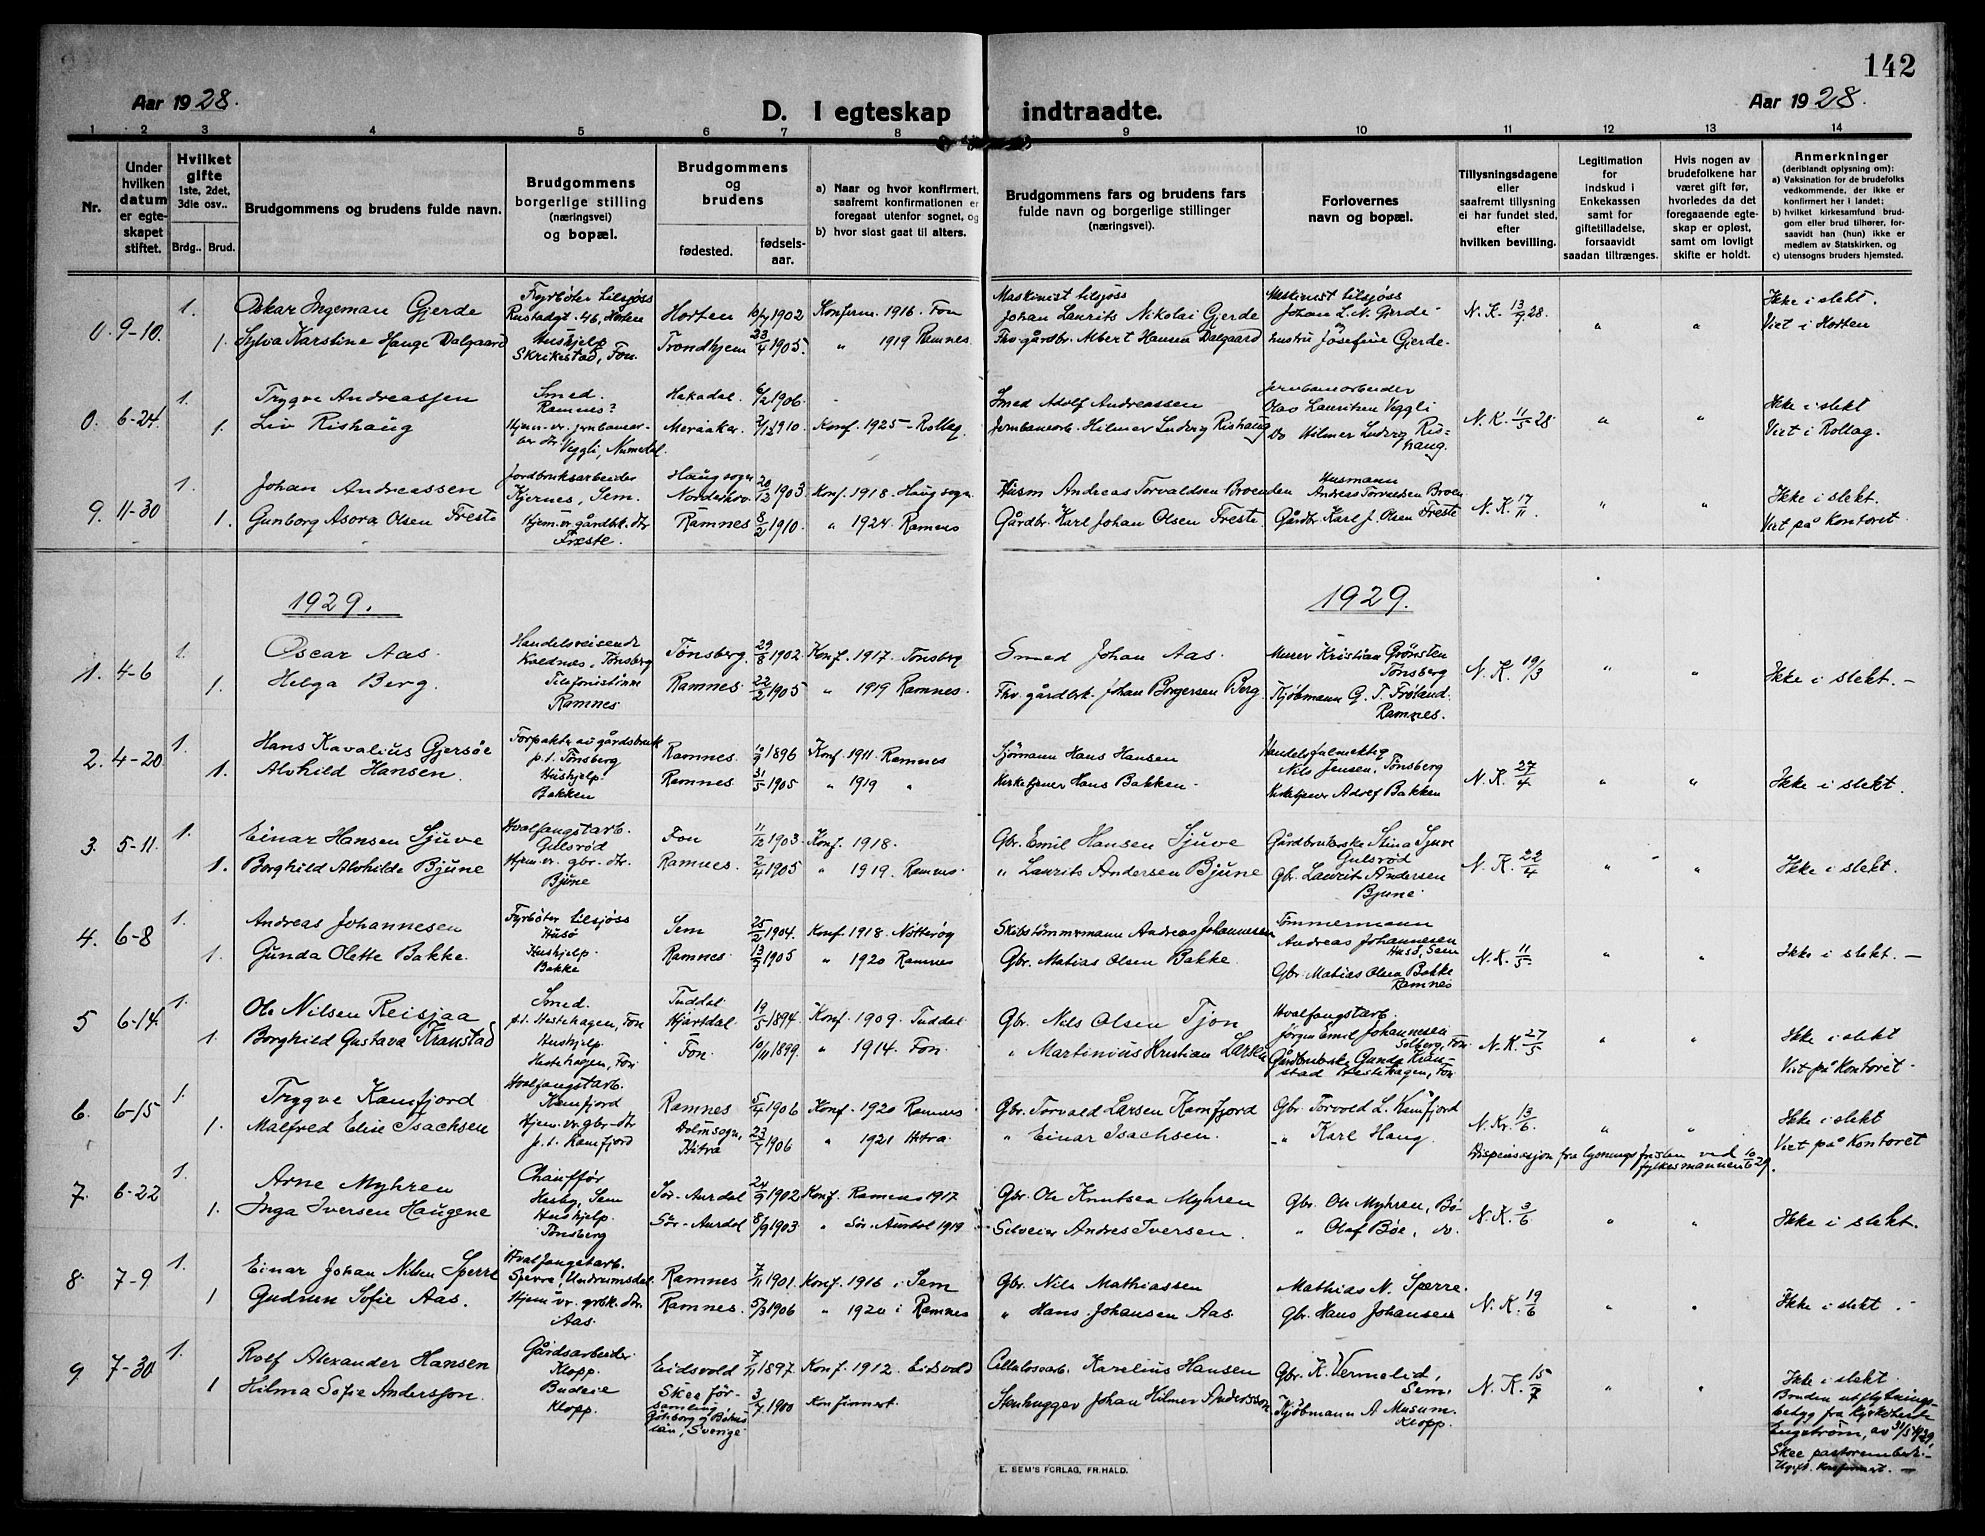 142
Aar 1928.
D. I egteskap indtraadte.
Aar 1928.
1 2 3 4 5 6 7 8 9 10 11 12 13 14
Nr.
Under hvilken datum er egteskapet stiftet.
Hvilket gifte 1ste, 2det, 3die osv..
Brdg.. Brud.
Brudgommens og brudens fulde navn.
Brudgommens borgerlige stilling (næringsvei) og bopæl.
Brudgommens og brudens
fødested. fødselsaar.
a) Naar og hvor konfirmert, saafremt konfirmationen er foregaat utenfor sognet, og
b) hvor sidst gaat til alters.
Brudgommens fars og brudens fars fulde navn og borgerlige stillinger (næringsvei).
Forlovernes navn og bopæl.
Tillysningsdagene eller saafremt tillysning ei har fundet sted, efter hvilken bevilling.
Legitimation for Indskud i Enkekassen samt for giftetilladelse, forsaavidt saadan tiltrænges.
Hvis nogen av brudefolkene har været gift før, hvorledes da det foregaaende egteskap er opløst, samt om lovligt skifte er holdt.
Anmerkninger (deriblandt oplysning om):
a) Vaksination for de brudefolks vedkommende, der ikke er konfirmert her i landet;
b) hvilket kirkesamfund brudgom eller brud tilhører, forsaavidt han (hun) ikke er medlem av Statskirken, og
c) utensogns bruders hjemsted.
0. 9-10. 1. Oskar Ingeman Gjerde Fyrbøter tilsjøss Rustadgt. 46, Horten Horten 1902 Konfirm. 1916 Fon Maskinist tilsjøss Johan Laurits Nikolai Gjerde Maskinist tilsjøss Johan L. N. Gjerde N. K. 13/9 28. " " Ikke i slekt. Viet i Horten
1. Sylva Karstine Hauge Dalgaard Hushjelp Skrikestad, Fon. Trondhjem 23/4 1905. " 1919 Ramnes Fhv. gårdbr. Albert Hansen Dalgaard hustru Josefine Gjerde.
0. 6-24. 1. Trygve Andreassen Smed. Ramnes? Hakadal. 6/2 1906. Smed Adolf Andreassen Jernbanearbeider Olav Lauritsen Veggli N. K. 11/5 28 " " Ikke i slekt Viet i Rollag.
1. Liv Rishaug Hjem-vr. jernbanearb. dtr. Veggli, Numedal. Meraaker 1910. Konf. 1925 Rollag. Jernbanearb. Hilmer Ludvig Rishaug Do Hilmer Ludvig Rishaug.
9. 11-30 1. Johan Andreassen Jordbruksarbeider Kjernes, Sem. Haug sogn Norderhov 20/12 1903 Konf. 1918. Haug sogn Husm Andreas Torvaldsen Broenden Husmann Andreas Torvaldsen Broen N. K. 17/11. " " Ikke i slekt. Viet på Kontoret.
1. Gunborg Asora Olsen Freste Hjem-vr gårdbr. dtr Freste. Ramnes 8/2 1910. " 1924 Ramnes Gårdbr. Karl Johan Olsen Freste. Gårdbr. Karl J. Olsen Freste
1929. 1929.
1. 4-6 1. Oscar Aas. Handelsreisende Kaldnes, Tønsberg Tønsberg. 29/8 1902. Konf. 1917. Tønsberg Smed Johan Aas. Murer Kristian Grønsten Tønsberg N. K. 19/3 " " Ikke i slekt.
1. Helga Berg. Telefonistinne Ramnes Ramnes. 22/2 1905 " 1919 Ramnes. Fhv. gårdbr. Johan Borgersen Berg. Kjøbmann G. T. Frøland. Ramnes.
2. 4-20 1. Hans Kavalius Gjersøe Forpakter av gårdsbruk p.t. Tønsberg Ramnes. 1896 Konf. 1911. Ramnes Sjømann Hans Hansen Handelsfulmektig Nils Jensen, Tønsberg N. K. 27/4 " " Ikke i slekt.
1. Alvhild Hansen. Hushjelp Bakken Ramnes. 31/5 1905 " 1919 " Kirketjener Hans Bakken. Kirketjener Adolf Bakken
3. 5-11. 1. Einar Hansen Sjuve Hvalfangstarb. Gulsrød Fon 11/12 1903. Konf. 1918. Gbr. Emil Hansen Sjuve Gårdbrukerske Stina Sjuve Gulsrød N. K. 22/4 " " Ikke i slekt.
1. Borghild Alvhilde Bjune Hjem-vr. gbr. dtr. Bjune Ramnes. 2/4 1905 " 1919. Ramnes " Laurits Andersen Bjune Gbr. Laurits Andersen Bjune
4. 6-8 1. Andreas Johannesen Fyrbøter tilsjøss Husø Sem 25/2 1904. Konf. 1918. Nøtterøy Skibstømmermann Andreas Johannesen Tømmermann Andreas Johannesen Husø, Sem N. K. 11/5 " " Ikke i slekt.
1. Gunda Olette Bakke. Hushjelp. Bakke Ramnes. 13/7 1905 " 1920 Ramnes Gbr. Matias Olsen Bakke. Gbr. Matias Olsen Bakke Ramnes
5 6-14. 1. Ole Nilsen Reisjaa Smed. p.t. Hestehagen, Fon Tuddal Hjartdal 19/5 1894. Konf. 1909. Tuddal. Gbr. Nils Olsen Tjon Hvalfangstarb. Jørgen Emil Johannesen Solberg, Fon N. K. 27/5 " " Ikke i slekt Viet på Kontoret
1. Borghild Gustava Kranstad Hushjelp Hestehagen, Fon Fon. 10/11 1899. " 1914. Fon. " Martinius Kristian Larsen Gårdbrukerske Gunda Kranstad Hestehagen, Fon
6. 6-15 1. Trygve Kamfjord Hvalfangstarb. Kamfjord Ramnes 5/4 1906 Konf. 1920 Ramnes Gbr. Torvald Larsen Kamfjord Gbr. Torvold L. Kamfjord N. K. 13/6. " " Ikke i slekt Viet på Kontoret
1. Malfred Elise Isachsen Hjem. vr. gbr. dtr p.t. Kamfjord Holmsogn, Hitra 23/7 1906 " 1921 Hitra. " Einar Isachsen. " Karl Haug. Dispensasjon fra lysningsfristen ved fylkesmannen 10/6 29.
7. 6-22 1. Arne Myhren Chauffør Hasby, Sem Sør-Aurdal 24/9 1902 Konf. Ramnes 1917 Gbr. Ole Knutsen Myhren Gbr. Ole Myhren, Bø N. K. 3/6 " " Ikke i slekt.
1. Inga Iversen Haugene Hushjelp. Tønsberg Sør-Aurdal 8/9 1903 " Sør-Aurdal 1919 Selveier Andres Iversen. " Olaf Bøe, do.
8. 7-9 1. Einar Johan Nilsen Sperre Hvalfangstarb. Sperre, Undrumsdal. Ramnes 7/11 1901. Konf. 1916 i Sem Gbr. Nils Mathiassen Mathias N. Sperre. N. K. 19/6 " " Ikke i slekt
1 Gudrun Sofie Aas. Hjem. vr. grbk. dtr. Aas. Ramnes. 5/3 1906 " 1920 i Ramnes " Hans Johansen Aas Gbr. Hans Johansen
9 7-30 1. Rolf Alexander Hansen Gårdsarbeider Klopp. Eidsvold 7/11 1897. Konf. 1912. Eidsvold Cellulosearb. Karelius Hansen Gbr. K. Vermelid, Sem. N. K. 15/7 " " Ikke i slekt.
1 Hilma Sofie Andersson. Budeie Klopp. Skee församling Göteborg og Bohus län, Sverige 3/7 1900 Konfirmert. Stenhugger Johan Hilmer Andersson Kjøbmann A Musum. Klopp.
Bruden utflytningsbetyg fra Kyrkoherde Engström, av 31/5 1929, Skee pastorsembete. Ugift. Konfirmert.
E. SEM'S FORLAG, FR.HALD.